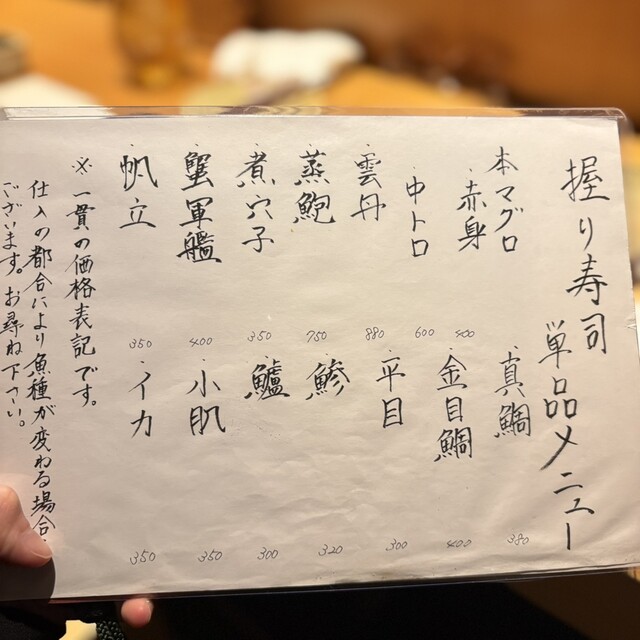 握り寿司
単品メニュー
本マグロ
・赤身 400
・中トロ 600
・雲丹 880
・蒸鮑 750
・煮穴子 350
・蟹軍艦 400
・帆立 350
・真鯛 380
・金目鯛 400
・平目 300
・鯵 320
・鱸 300
・小肌 350
・イカ 350
※一貫の価格表記です。
仕入の都合により魚種が変わる場合
ございます。お尋ね下さい。